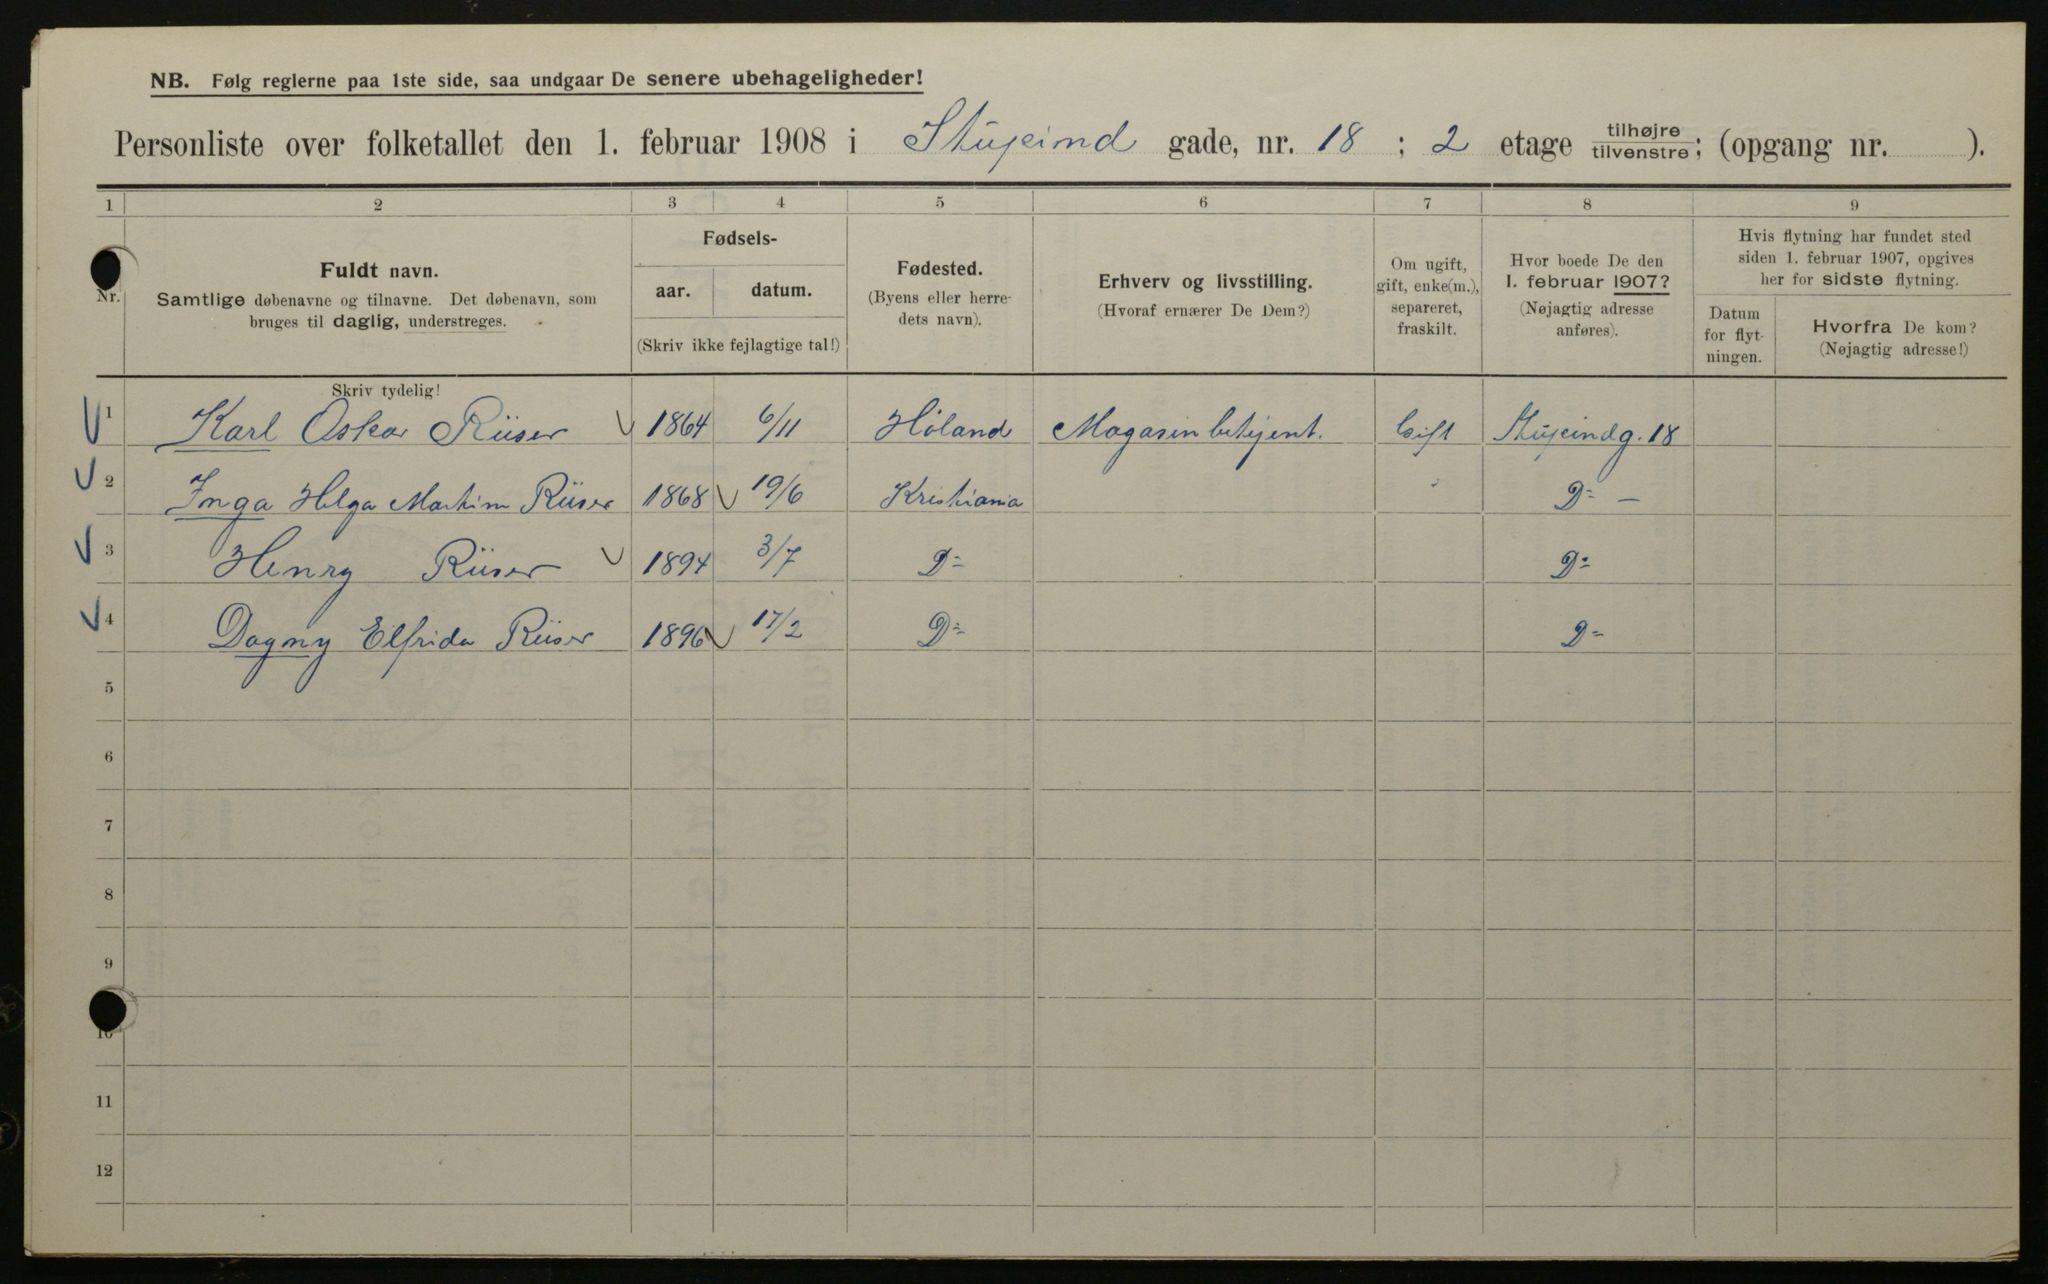 NB. Følg reglerne paa 1ste side, saa undgaar De senere ubehageligheder!
Personliste over folketallet den 1. februar 1908 i Stupeind gade, nr. 18 ; 2 etage tilhøjre tilvenstre; (opgang nr. ).
1 2 3 4 5 6 7 8 9
Nr.
Fuldt navn.
Samtlige døbenavne og tilnavne. Det døbenavn, som
bruges til daglig, understreges.
Skriv tydelig!
Fødsels-
aar. datum.
(Skriv ikke fejlagtige tal!)
Fødested.
(Byens eller herre-
dets navn).
Erhverv og livsstilling.
(Hvoraf ernærer De Dem?)
Om ugift,
gift, enke(m.),
separeret,
fraskilt.
Hvor boede De den
1. februar 1907?
(Nøjagtig adresse
anføres).
Hvis flytning har fundet sted
siden 1. februar 1907, opgives
her for sidste flytning.
Datum
for flyt-
ningen.
Hvorfra De kom?
(Nøjagtig adresse!)
1 Karl Oskar Riiser 1864 6/11 Høland Magasinbetjent. Gift Stupeindg. 18
2 Inga Helga Martine Riiser 1868 19/6 Kristiania D= —
3 Henry Riiser 1894 3/7 D= D=
4 Dagny Elfrida Riiser 1896 17/2 D= D=
5
6
7
8
9
10
11
12